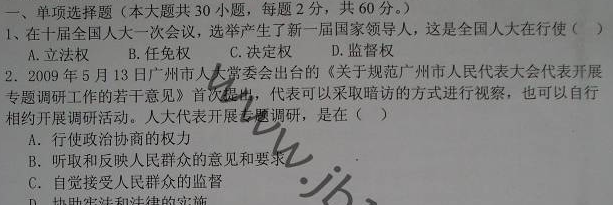 一、单项选择题（本大题共 30 小题，每题 2 分，共 60 分。）
1、在十届全国人大一次会议，选举产生了新一届国家领导人，这是全国人大在行使（ ）
A.立法权 B.任免权 C.决定权 D.监督权
2．2009 年 5 月 13 日广州市人大常委会出台的《关于规范广州市人民代表大会代表开展
专题调研工作的若干意见》首次提出，代表可以采取暗访的方式进行视察，也可以自行
相约开展调研活动。人大代表开展专题调研，是在（ ）
A．行使政治协商的权力
B．听取和反映人民群众的意见和要求
C．自觉接受人民群众的监督
D．协助宪法和法律的实施
www.jb